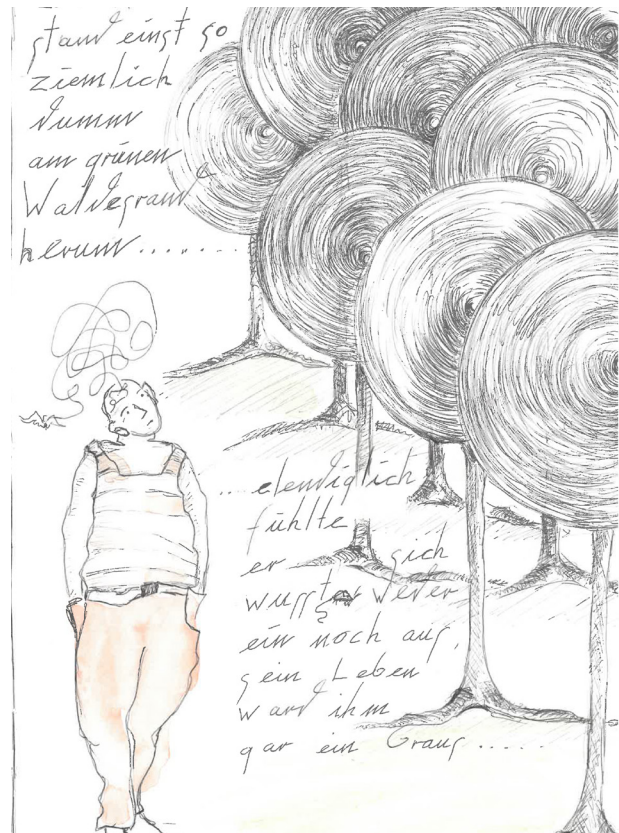 stand einst so
ziemlich
dumm
am grünen
Waldesrand
herum........
....elendiglich
fühlte
er sich
wusste weder
ein noch aus,
sein Leben
ward ihm
gar ein Graus.....